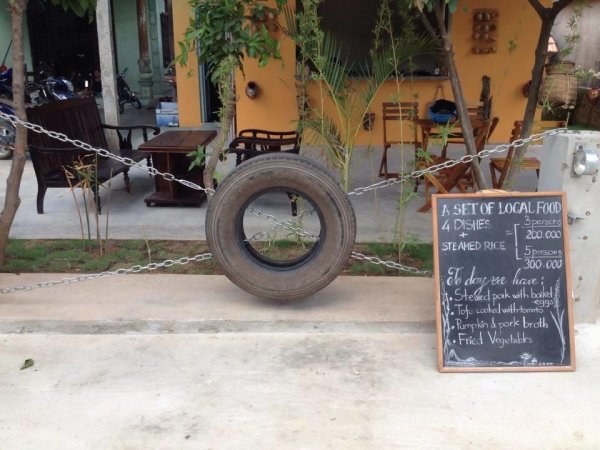 A SET OF LOCAL FOOD
4 DISHES
+
STEAMED RICE
=
3 persons
200.000
5 persons
300.000
To day we have:
• Stewed pork with boiled eggs
• Tofu cooked with tomato
• Pumpkin & pork broth
• Fried Vegetables